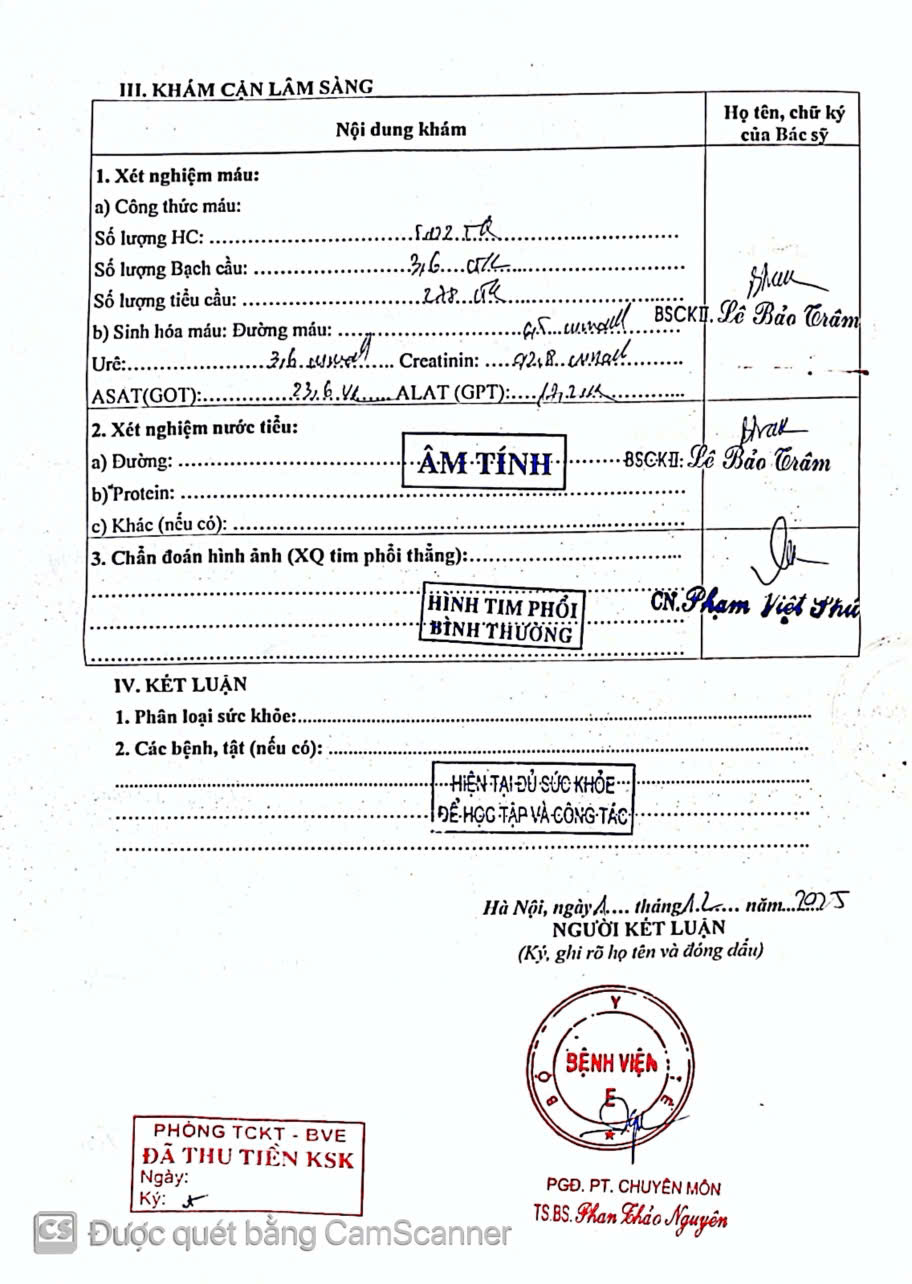 III. KHÁM CẬN LÂM SÀNG
Nội dung khám
Họ tên, chữ ký
của Bác sỹ
1. Xét nghiệm máu:
a) Công thức máu:
Số lượng HC:
Số lượng Bạch cầu: 3,6
Số lượng tiểu cầu: 278
BSCKII. Lê Bảo Trâm
b) Sinh hóa máu: Đường máu:
Urê: 3,6 Creatinin:
ASAT(GOT): 23,6 ALAT (GPT):
2. Xét nghiệm nước tiểu:
a) Đường: ÂM TÍNH
BSCKII: Lê Bảo Trâm
b) Protein:
c) Khác (nếu có):
3. Chẩn đoán hình ảnh (XQ tim phổi thẳng):
HÌNH TIM PHỔI
BÌNH THƯỜNG
CN. Phạm Việt Phú
IV. KẾT LUẬN
1. Phân loại sức khỏe:
2. Các bệnh, tật (nếu có):
HIỆN TẠI ĐỦ SỨC KHỎE
ĐỂ HỌC TẬP VÀ CÔNG TÁC
Hà Nội, ngày 1 tháng 12 năm 2025
NGƯỜI KẾT LUẬN
(Ký, ghi rõ họ tên và đóng dấu)
BỘ Y TẾ
BỆNH VIỆN
E
PGĐ. PT. CHUYÊN MÔN
TS.BS. Phan Thảo Nguyên
PHÒNG TCKT - BVE
ĐÃ THU TIỀN KSK
Ngày:
Ký:
CS Được quét bằng CamScanner